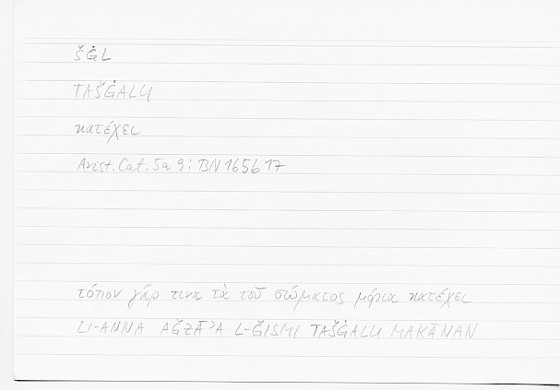 ŠĠL
TAŠĠALU
κατέχει
Arist. Cat. 5a 9 : BN 165b 17
τόπον γάρ τινα τὰ τοῦ σώματος μόρια κατέχει
LI-ANNA AǦZĀʾA L-ǦISMI TAŠĠALU MAKĀNAN